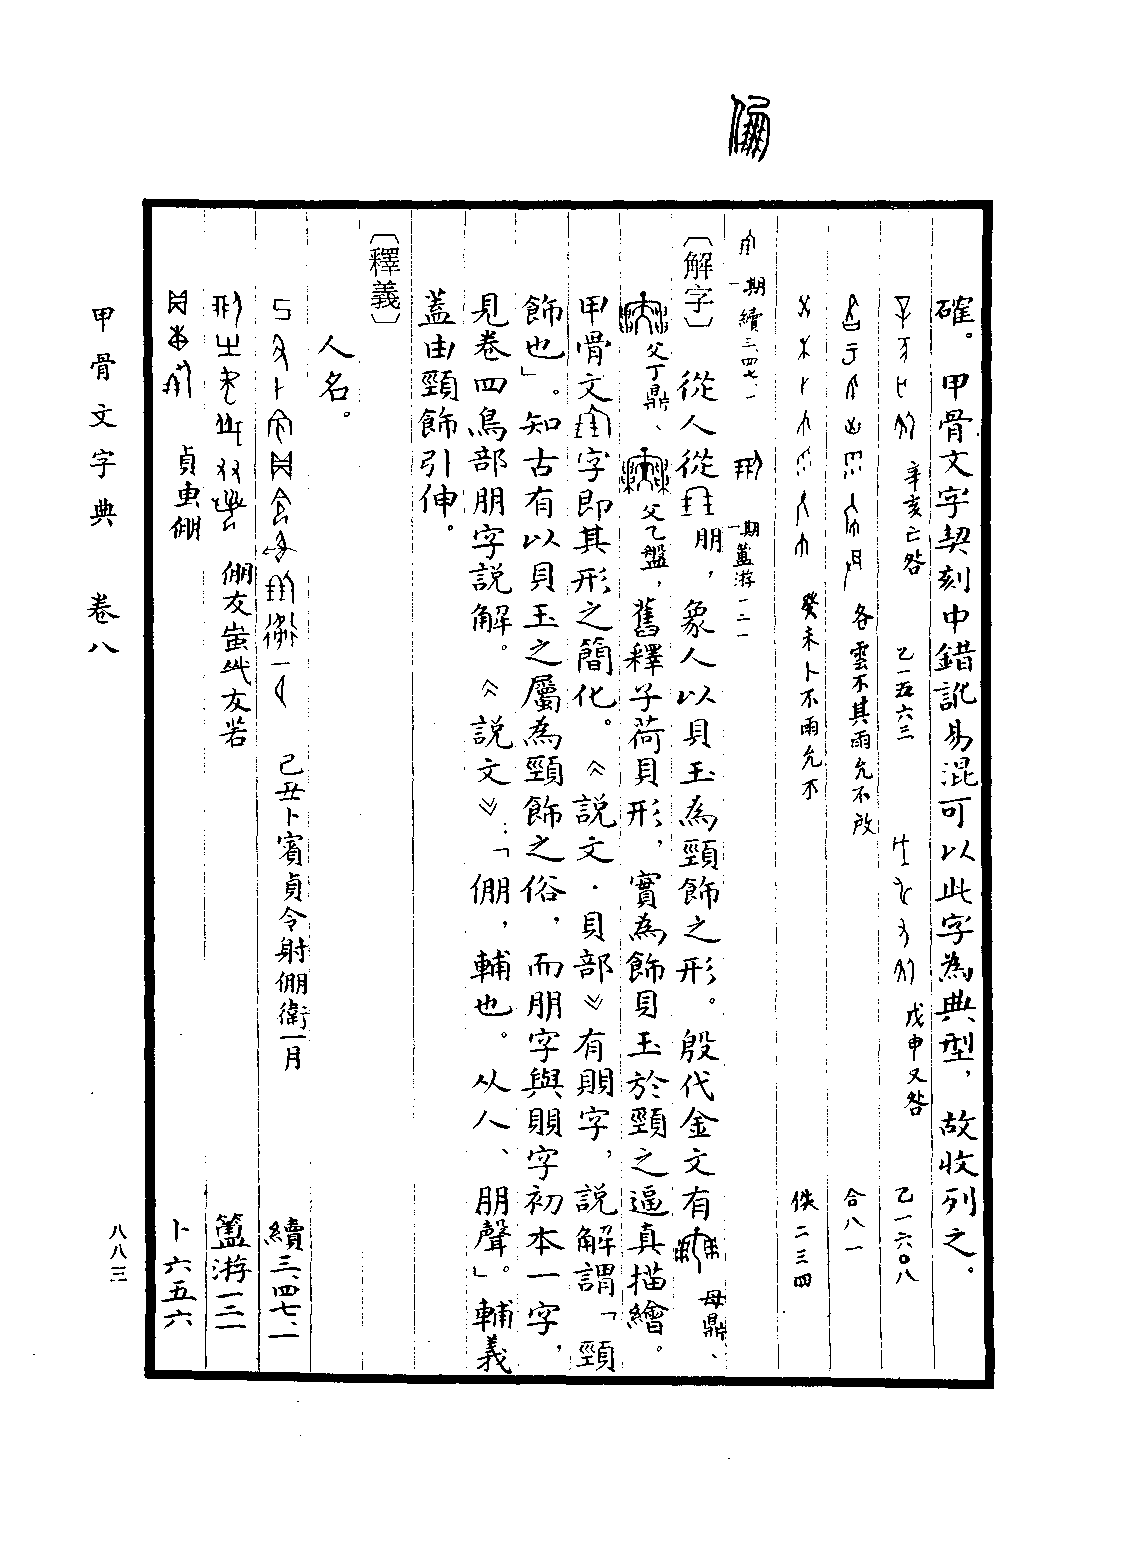 確。甲骨文字契刻中錯訛易混可以此字為典型，故收列之。
辛亥亡咎 乙一五六三 戊申又咎 乙一六〇八
各雲不其雨允不啟 合八一
癸未卜不雨允不 佚二三四
一期續三、四七、一 一期簠游一二一
〔解字〕從人從朋，象人以貝玉為頸飾之形。殷代金文有母鼎、
父丁鼎、父乙盤，舊釋子荷貝形，實為飾貝玉於頸之逼真描繪。
甲骨文字即其形之簡化。《說文·貝部》有賏字，說解謂「頸
飾也」。知古有以貝玉之屬為頸飾之俗，而朋字與賏字初本一字，
見卷四鳥部朋字說解。《說文》：「倗，輔也。从人、朋聲」。輔義
蓋由頸飾引伸。
〔釋義〕
人名。
己丑卜賓貞令射倗衛一月 續三、四七、一
倗友友若 簠游一二一
貞虫倗 卜六五六
甲骨文字典 卷八 八八三